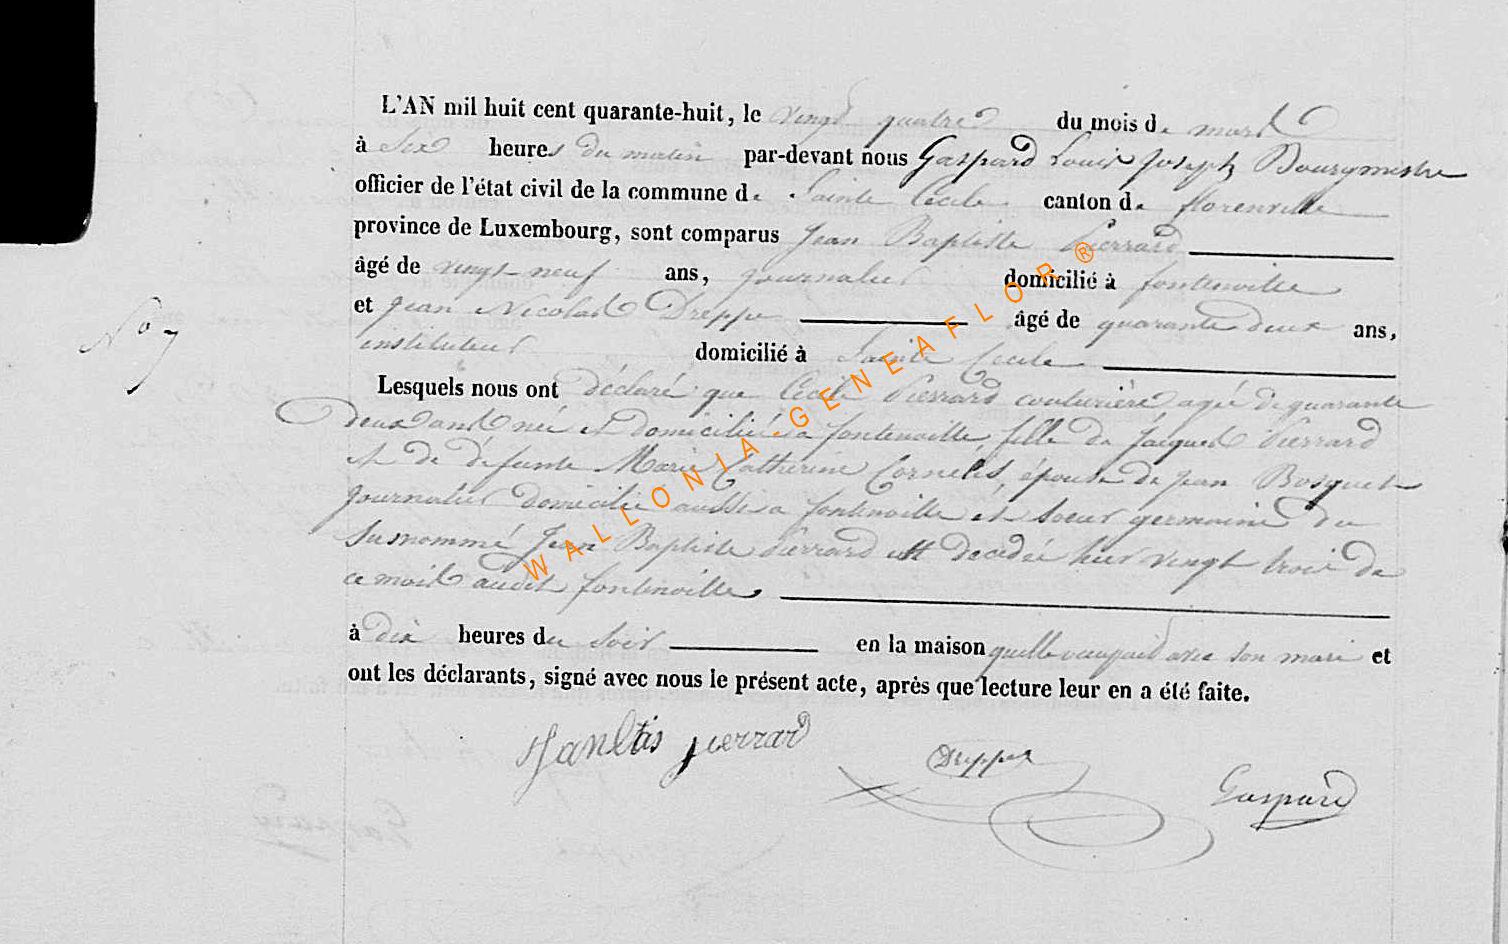 L'AN mil huit cent quarante-huit, le vingt quatre du mois de mars
à six heures du matin par-devant nous Gaspard Louis Joseph Bourgmestre
officier de l'état civil de la commune de Sainte Cécile canton de florenville
province de Luxembourg, sont comparus Jean Baptiste Pierrard
âgé de vingt-neuf ans, journalier domicilié à fontenoille
et Jean Nicolas Dreppe âgé de quarante deux ans,
instituteur domicilié à Sainte Cecile
Lesquels nous ont déclaré que Cécile Pierrard couturière agée de quarante
deux ans née et domiciliée à fontenoille, fille de Jacques Pierrard
et de défunte Marie Catherine Cornelis, épouse de Jean Bosquet
journalier domicilié aussi a fontenoille et soeur germaine du
susnommé Jean Baptiste Pierrard est decedée hier vingt trois de
ce mois audit fontenoille
à dix heures du soir en la maison quelle occupait avec son mari et
ont les déclarants, signé avec nous le présent acte, après que lecture leur en a été faite.
No 7
pierrard
Dreppe
Gaspard
WALLONIA.GENEAFLOR®